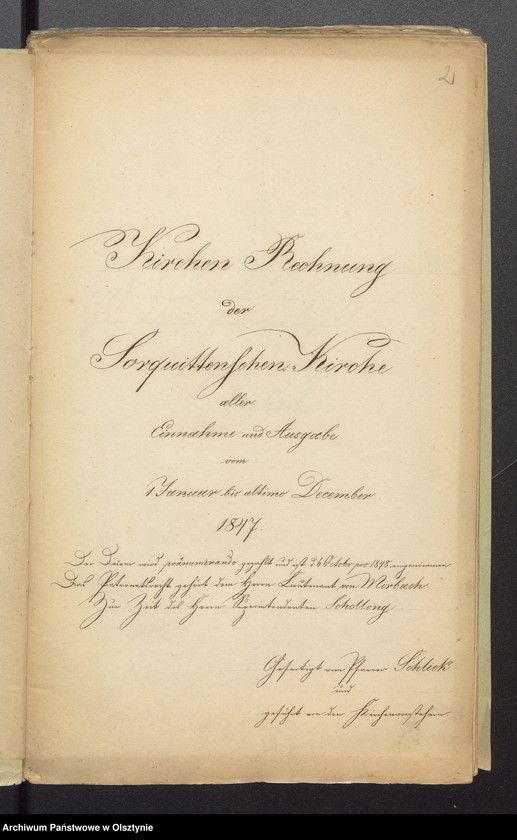 2
Kirchen Rechnung
der
Sorquittenschen Kirche
aller
Einnahme und Ausgabe
vom
1 Januar bis ultimo December
1847.
Der Decem wird pränumerando gezahlt und ist 96 Octobr pro 1848 eingenommen
Das Patronatsrecht gehört dem Herrn Lieutenant von Mirbach
Zur Zeit des Herrn Superintendenten Schellong
Gefertigt vom Pfarrer Schleck
und
geführt von den Kirchenvorstehern.
Archiwum Państwowe w Olsztynie